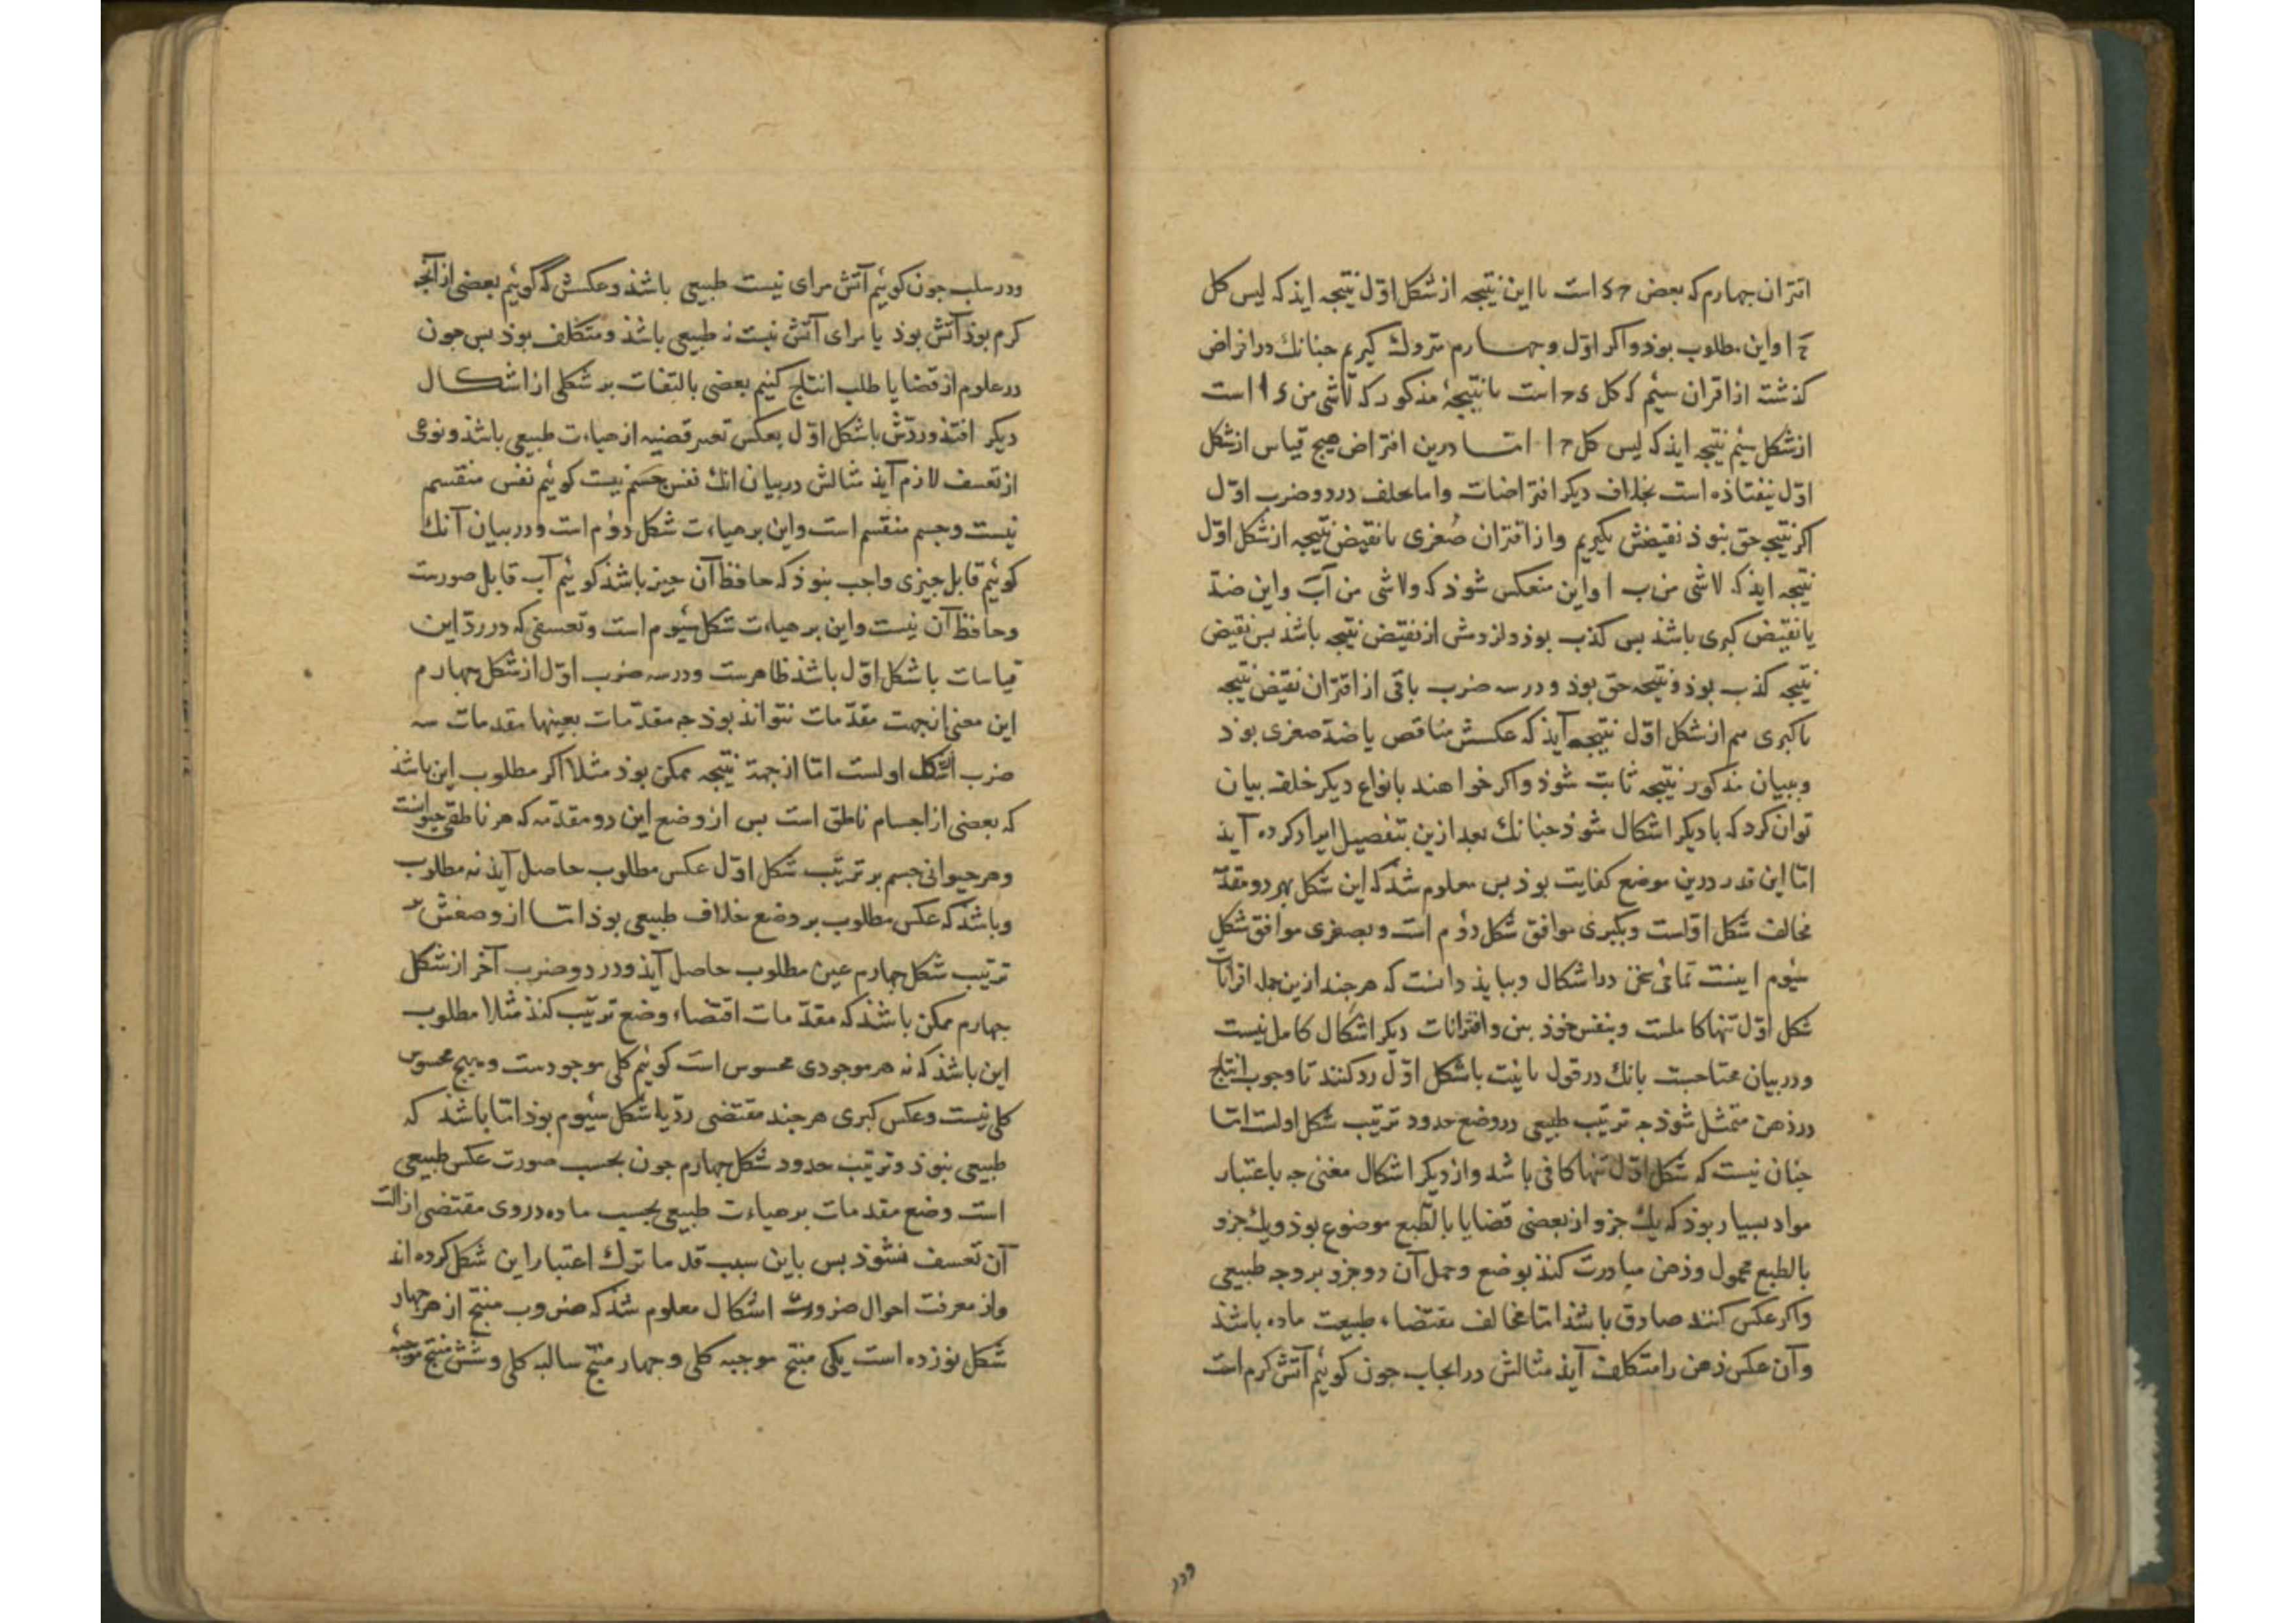 اقتران چهارم که بعض ج د است با این نتیجه از شکل اوّل نتیجه ایذ که لیس کل
ج ا و این مطلوب بوذ و اکر اوّل و چهارم متروك کیریم جنانك در افتراض
کذشت از اقران سیٔم که کل د ج است با نتیجهٔ مذکور که لاشی من د ا است
از شکل سیٔم نتیجه ایذ که لیس کل ج ا امّا درین افتراض هیچ قیاس از شکل
اوّل نیفتاذه است بخلاف دیکر افتراضات و اما بخلف در دو ضرب اوّل
اکر نتیجه حق نبوذ نقیضش بکیریم و از اقتران صُغری با نقیض نتیجه از شکل اوّل
نتیجه ایذ که لاشی من ب ا و این منعکس شوذ که ولاشی من آبَ و این ضدّ
یا نقیض کبری باشذ بس کذب بوذ و لزومش از نقیض نتیجه باشذ بس نقیض
نتیجه کذب بوذ و نتیجه حق بوذ و در سه ضرب باقی از اقتران نقیض نتیجه
با کبری هم از شکل اوّل نتیجه آیذ که عکسش مناقض یا ضدّ صغری بوذ
و ببیان مذکور نتیجه ثابت شوذ و اکر خواهند بانواع دیکر خلف بیان
توان کرد که با دیکر اشکال شوذ جنانك بعد ازین بتفصیل ایراد کرده آیذ
امّا این قدر درین موضع کفایت بوذ بس معلوم شذ که این شکل بهر دو مقدّمه
مخالف شکل اوّلست و بکبری موافق شکل دوٌم است و بصغری موافق شکل
سیٔوم اینست تمامٔی سخن در اشکال و ببایذ دانست که هر جند ازین جمله اقرانات
شکل اوّل تنها کاملست و بنفس خوذ بین و اقترانات دیکر اشکال کامل نیست
و در بیان محتاجست بانك در قول با نیت با شکل اوّل رد کنند تا وجوب انتاج
در ذهن متمثل شوذ جه ترتیب طبیعی در وضع حدود ترتیب شکل اولست امّا
جنان نیست که شکل اوّل تنها کافی باشد و از دیکر اشکال مغنی جه باعتبار
مواد بسیار بوذ که یك جزو از بعضی قضایا بالطّبع موضوع بوذ و یك جزو
بالطبع محمول و ذهن مبادرت کنذ بوضع و حمل آن دو جزو بر وجه طبیعی
و اکر عکس کنند صادق باشذ امّا مخالف مقتضاء طبیعت ماده باشذ
و آن عکس ذهن را متکلف آیذ مثالش در ایجاب جون کوئیٔم آتش کرم است
ودر
و در سلب جون کوئیٔم آتش مرای نیست طبیعی باشذ و عکسش که کوئیٔم بعضی از آنجه
کرم بوذ آتش بوذ یا مرای آتش نیست نه طبیعی باشذ و متکلف بوذ بس جون
در علوم از قضایا طلب انتاج کنیم بعضی بالتفات بر شکلی از اشکال
دیکر افتذ و ردّش با شکل اوّل بعکس تعبیر قضیه از هیاءت طبیعی باشذ و نوعی
از تعسف لازم آیذ مثالش در بیان انك نفس جسم نیست کوئیٔم نفس منقسم
نیست و جسم منقسم است و این بر هیاءت شکل دوٌم است و در بیان آنك
کوئیٔم قابل جیزی واجب نبوذ که حافظ آن جیز باشذ کوئیٔم آب قابل صورت
و حافظ آن نیست و این بر هیاءت شکل سیٔوم است و تعسفی که در ردّ این
قیاسات با شکل اوّل باشذ ظاهرست و در سه ضرب اوّل از شکل چهارم
این معنی از جهت مقدّمات نتواند بوذ جه مقدّمات بعینها مقدمات سه
ضرب اشکل اولست امّا از جهة نتیجه ممکن بوذ مثلا اکر مطلوب این باشذ
که بعضی از اجسام ناطق است بس از وضع این دو مقدّمه که هر ناطقی حیوانست
و هر حیوانی جسم بر ترتیب شکل اوّل عکس مطلوب حاصل آیذ نه مطلوب
و باشذ که عکس مطلوب بر وضع خلاف طبیعی بوذ امّا از وضعش بر
ترتیب شکل چهارم عین مطلوب حاصل آیذ و در دو ضرب آخر از شکل
چهارم ممکن باشذ که مقدّمات اقتضاء وضع ترتیب کنذ مثلا مطلوب
این باشذ که نه هر موجودی محسوس است کوئیٔم کلی موجودست و هیچ محسوس
کلی نیست و عکس کبری هر جند مقتضی ردّ با شکل سیٔوم بوذ امّا باشذ که
طبیعی نبوذ و ترتیب حدود شکل چهارم جون بحسب صورت عکس طبیعی
است وضع مقدمات بر هیاءت طبیعی بحسب ماده در وی مقتضی ازالت
آن تعسف نشوذ بس باین سبب قدما ترك اعتبار این شکل کرده اند
و از معرفت احوال ضروب اشکال معلوم شذ که ضروب منتج از هر چهار
شکل نوزده است یکی منتج موجبه کلی و چهار منتج سالبه کلی و شش منتج موجبه